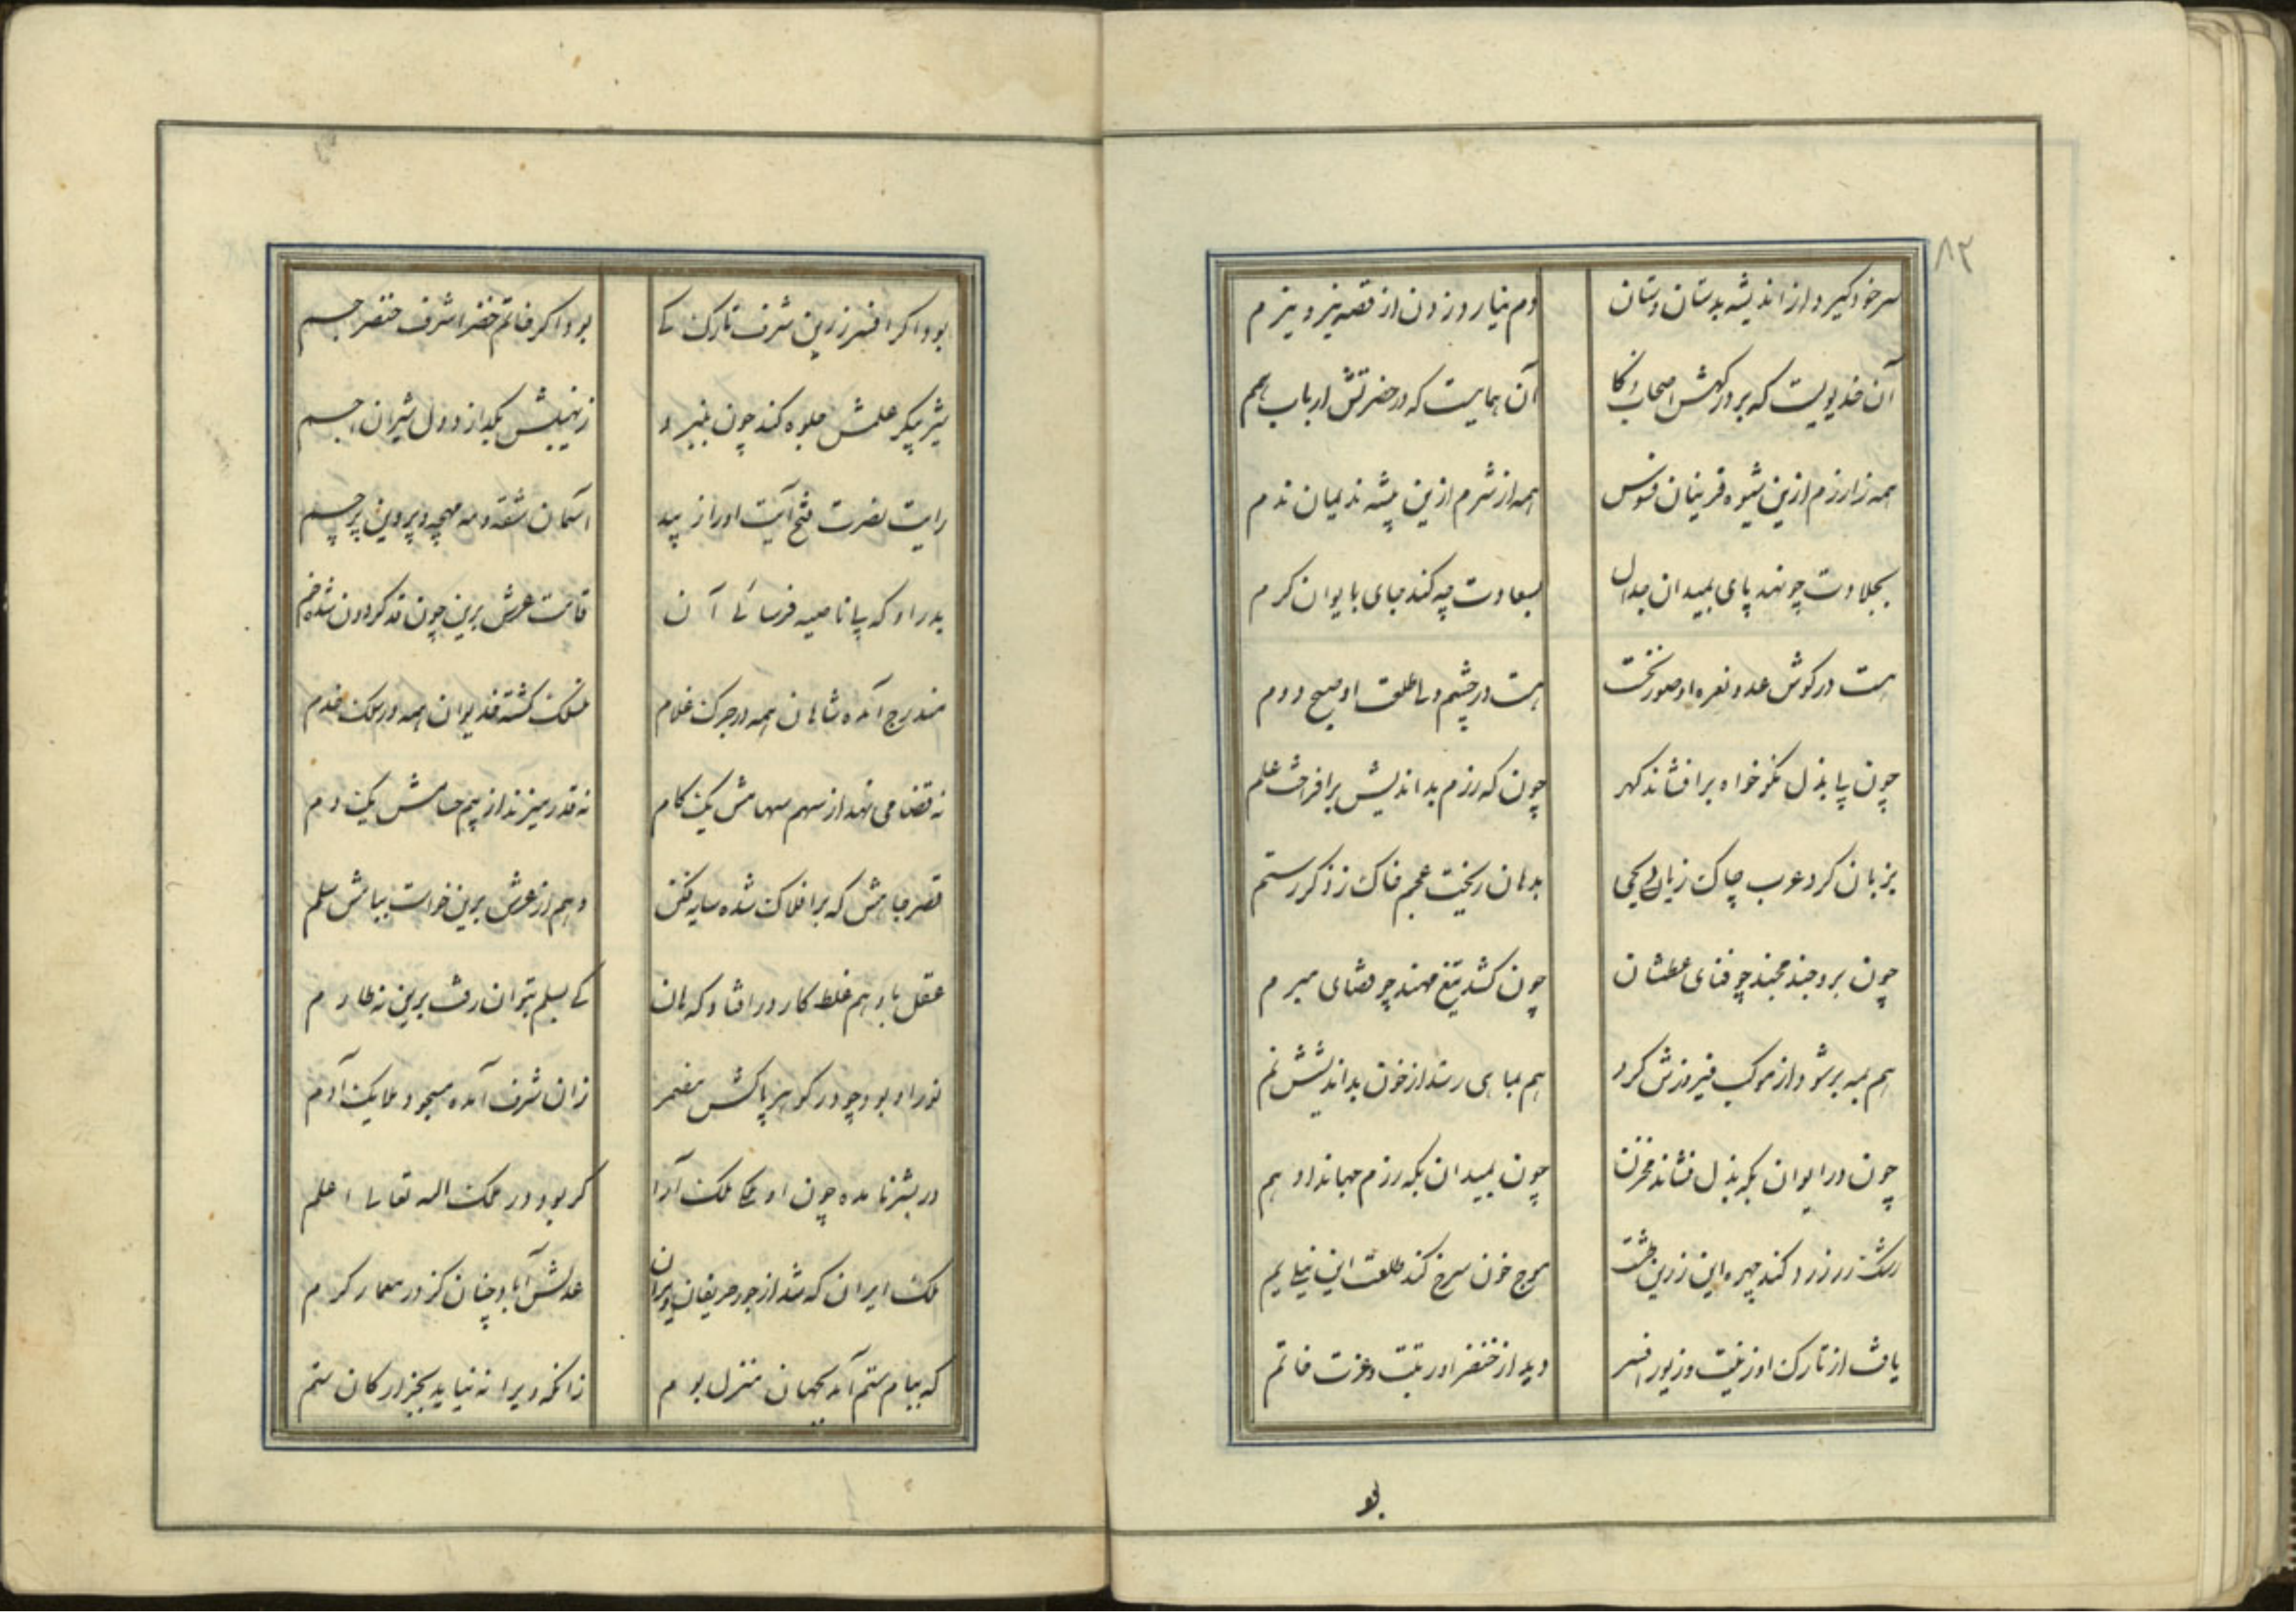 ۸۲
سر خود گیرد از اندیشه بدستان دستان
دم نیارد زدن از قصه نیزه نیزم
آن خدیویست که بر درگهش اصحاب
آن همایست که در حضرتش ارباب همم
همه را رزم ازین شیوه قرینان فسوس
همه از شرم ازین پیشه ندیمان ندم
بجلادت چو نهد پای بمیدان جدال
بسعادت چه کند جای بایوان کرم
هست در کوش عدو نعره او صور نخست
هست در چشم ولی طلعت او صبح دوم
چون پا بذل نکو خواه برافشاند کهر
چون که رزم بداندیش برافراخت علم
بزبان کرد عرب چاک ز یاد یحیی
بدهان ریخت عجم خاک ز ذکر رستم
چون برو جند مجند چو فنای عطشان
چون کشد تیغ مهند چو قضای مبرم
هم بمه بر شود از موکب فیروزش کرد
هم بماهی رسد از خون بداندیشش نم
چون در ایوان بکه بذل فشاند مخزن
چون بمیدان بکه رزم جهاند ادهم
رشک زر زرد کند چهره این زرین طشت
موج خون سرخ کند طلعت این نیلی یم
یافت از تارک او زینت و زیور افسر
دید از خنصر او رتبت و عزت خاتم
بو
بود اکر افسر زرین شرف تارک کی
بود اکر خاتم خضرا شرف خنصر جم
شیر پیکر علمش جلوه کند چون بنبرد
ز نهیبش بگدازد دل شیران اجم
رایت نصرت فتح آیت او را ز پید
آسمان شقه و مه مهچه و پروین پرچم
بدر او که بپا ناصیه فرسائی آن
قامت عرش برین چون قد کردون شده خم
مندرج آمده شاهان همه در جرک غلام
منسلک کشته خدیوان همه در سلک خدم
نه قضا می نهد از سهم سهامش یک کام
نه قدر میزند از بیم حسامش یک دم
قصر جاهش که بر افلاک شده سایه فکن
وهم از عرش برین خواست ببامش سلم
عقل با وهم غلط کار در افتاد که هان
کی بسلم بتوان رفت برین نه طارم
نور او بود چو در کوهر پاکش مضمر
زان شرف آمده مسجود ملایک آدم
در بشر نامده چون او ملکی ملک آرا
کر بود در ملک الله تعالی اعلم
ملک ایران که شد از جور حریفان ویران
عدلش آباد چنان کز در معمار کرم
که ببام ستم آمد بجهان منزل بوم
زانکه ویرانه نیاید بجز ارکان ستم